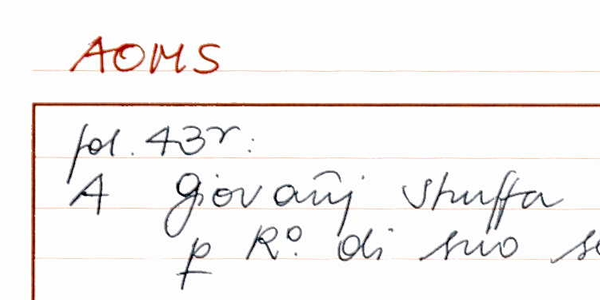 AOMS
fol. 43r:
A Giovañj Stuffa
p Rº. di suo se